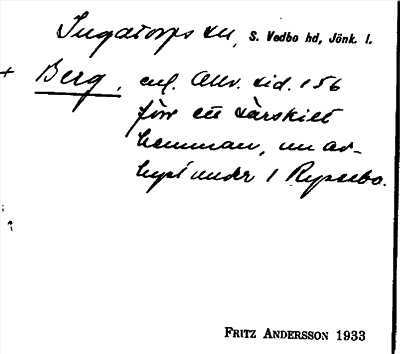 Ingatorps sn, S. Vedbo hd, Jönk. l.
+ Berg, enl. Allv. sid. 156
förr ett särskilt
hemman, nu av-
hyst under 1 Rypsebo.
FRITZ ANDERSSON 1933